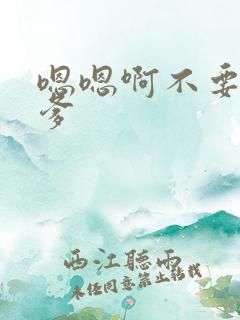 嗯嗯啊不要
爹
西江聽雨
未经同意禁止转载